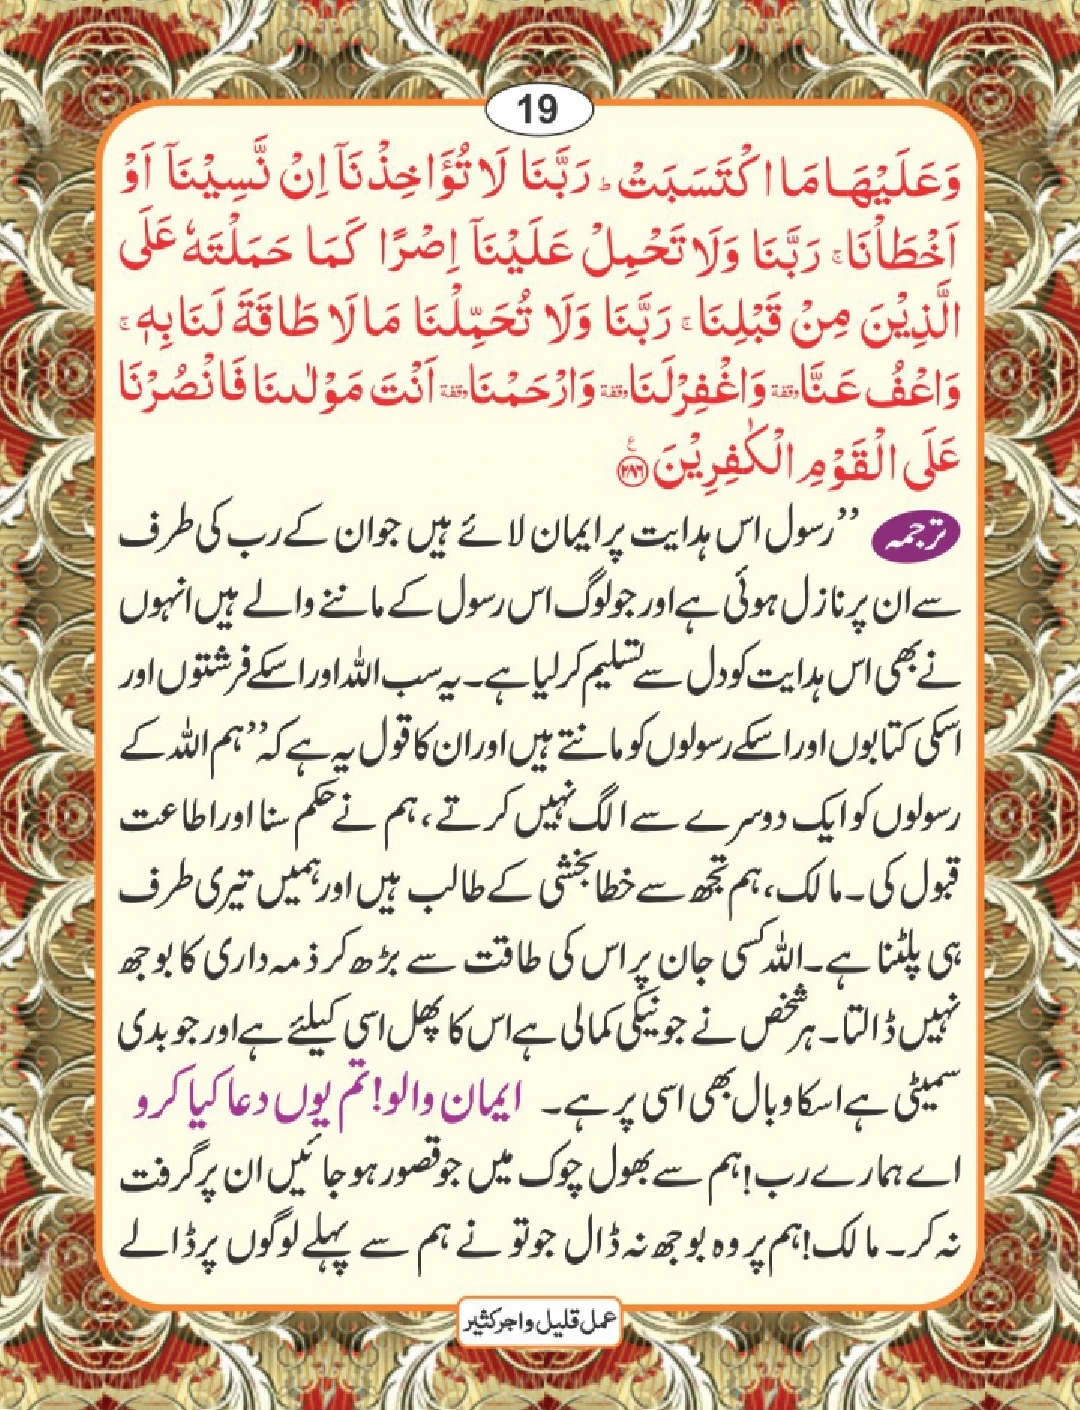 19
وَعَلَيْهَا مَا اكْتَسَبَتْ ؕ رَبَّنَا لَا تُؤَاخِذْنَآ اِنْ نَّسِيْنَآ اَوْ
اَخْطَاْنَا ۚ رَبَّنَا وَلَا تَحْمِلْ عَلَيْنَآ اِصْرًا كَمَا حَمَلْتَهٗ عَلَى
الَّذِيْنَ مِنْ قَبْلِنَا ۚ رَبَّنَا وَلَا تُحَمِّلْنَا مَا لَا طَاقَةَ لَنَا بِهٖ ۚ
وَاعْفُ عَنَّا وقفة وَاغْفِرْ لَنَا وقفة وَارْحَمْنَا وقفة اَنْتَ مَوْلٰىنَا فَانْصُرْنَا
عَلَى الْقَوْمِ الْكٰفِرِيْنَ ع ﴿۲۸۶﴾
ترجمہ ’’رسول اس ہدایت پر ایمان لائے ہیں جو ان کے رب کی طرف
سے ان پر نازل ہوئی ہے اور جو لوگ اس رسول کے ماننے والے ہیں انہوں
نے بھی اس ہدایت کو دل سے تسلیم کر لیا ہے۔ یہ سب اللہ اور اسکے فرشتوں اور
اسکی کتابوں اور اسکے رسولوں کو مانتے ہیں اور ان کا قول یہ ہے کہ ’’ہم اللہ کے
رسولوں کو ایک دوسرے سے الگ نہیں کرتے، ہم نے حکم سنا اور اطاعت
قبول کی۔ مالک، ہم تجھ سے خطا بخشی کے طالب ہیں اور ہمیں تیری طرف
ہی پلٹنا ہے۔ اللہ کسی جان پر اس کی طاقت سے بڑھ کر ذمہ داری کا بوجھ
نہیں ڈالتا۔ ہر شخص نے جو نیکی کمالی ہے اس کا پھل اسی کیلئے ہے اور جو بدی
سمیٹی ہے اسکا وبال بھی اسی پر ہے۔ ایمان والو! تم یوں دعا کیا کرو
اے ہمارے رب! ہم سے بھول چوک میں جو قصور ہو جائیں ان پر گرفت
نہ کر۔ مالک! ہم پر وہ بوجھ نہ ڈال جو تو نے ہم سے پہلے لوگوں پر ڈالے
عمل قلیل و اجر کثیر